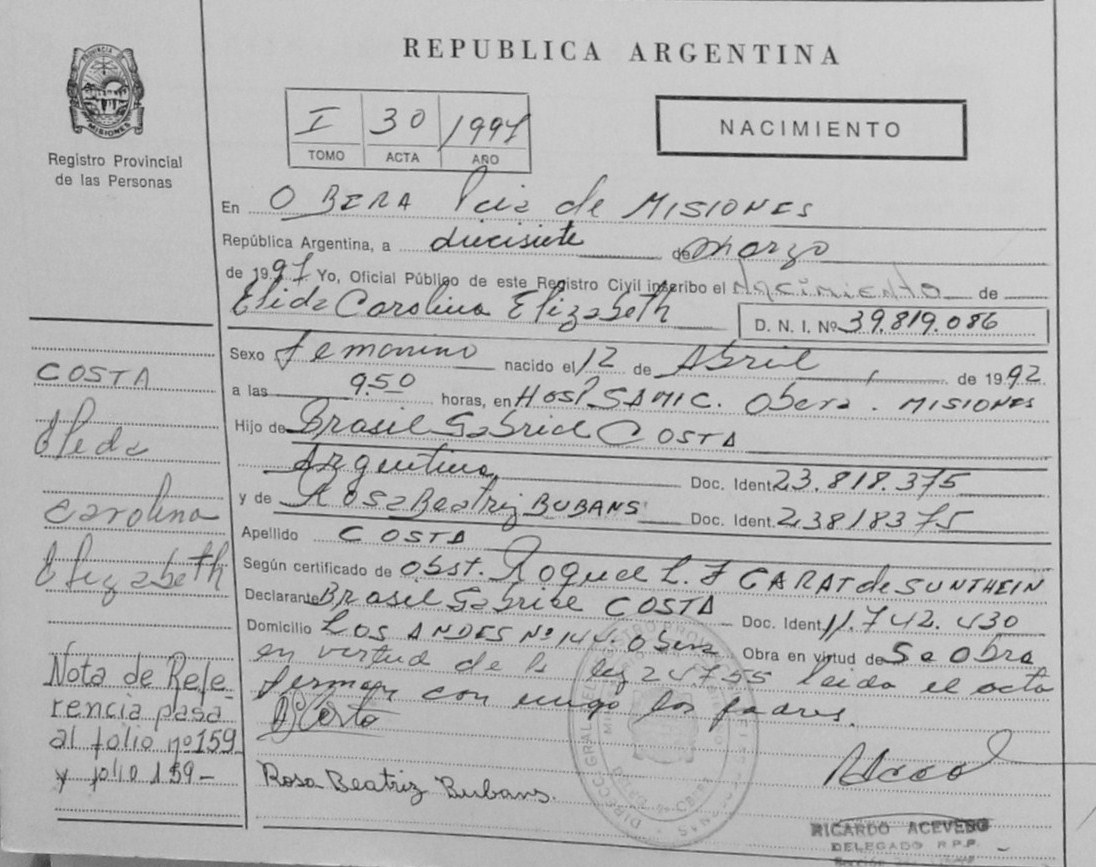 REPUBLICA ARGENTINA
PROVINCIA DE MISIONES
Registro Provincial
de las Personas
I 30 1997
TOMO ACTA AÑO
NACIMIENTO
En OBERA Pcia de MISIONES
República Argentina, a diecisiete de marzo
de 1997 Yo, Oficial Público de este Registro Civil inscribo el Nacimiento de
Elida Carolina Elizabeth
D. N. I. Nº 39.819.086
Sexo femenino nacido el 12 de Abril de 1992.
a las 9.50 horas, en Hosp. SAMIC. Obera. MISIONES
Hijo de Brasil Gabriel COSTA
Argentina Doc. Ident. 23.818.375
y de Rosa Beatriz BUBANS Doc. Ident. 23818375
Apellido COSTA
Según certificado de obst. Raquel L. F CARAT de SUNTHEIN
Declarante Brasil Gabriel COSTA Doc. Ident. 11.742.430
Domicilio LOS ANDES Nº 144. Obera Obra en virtud de Se obra
en virtud de la ley 24755 leida el acta
firman con migo los padres.
Rosa Beatriz Bubans.
RICARDO ACEVEDO
DELEGADO R.P.P.
COSTA
Elida
Carolina
Elizabeth
Nota de Refe-
rencia pasa
al folio nº 159
y folio 159-